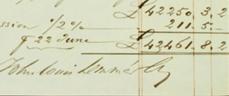 £ 42250.3.2
ssion 1/2 % 211.5.-
22 June £ 42461.8.2
John Louis Lemmé